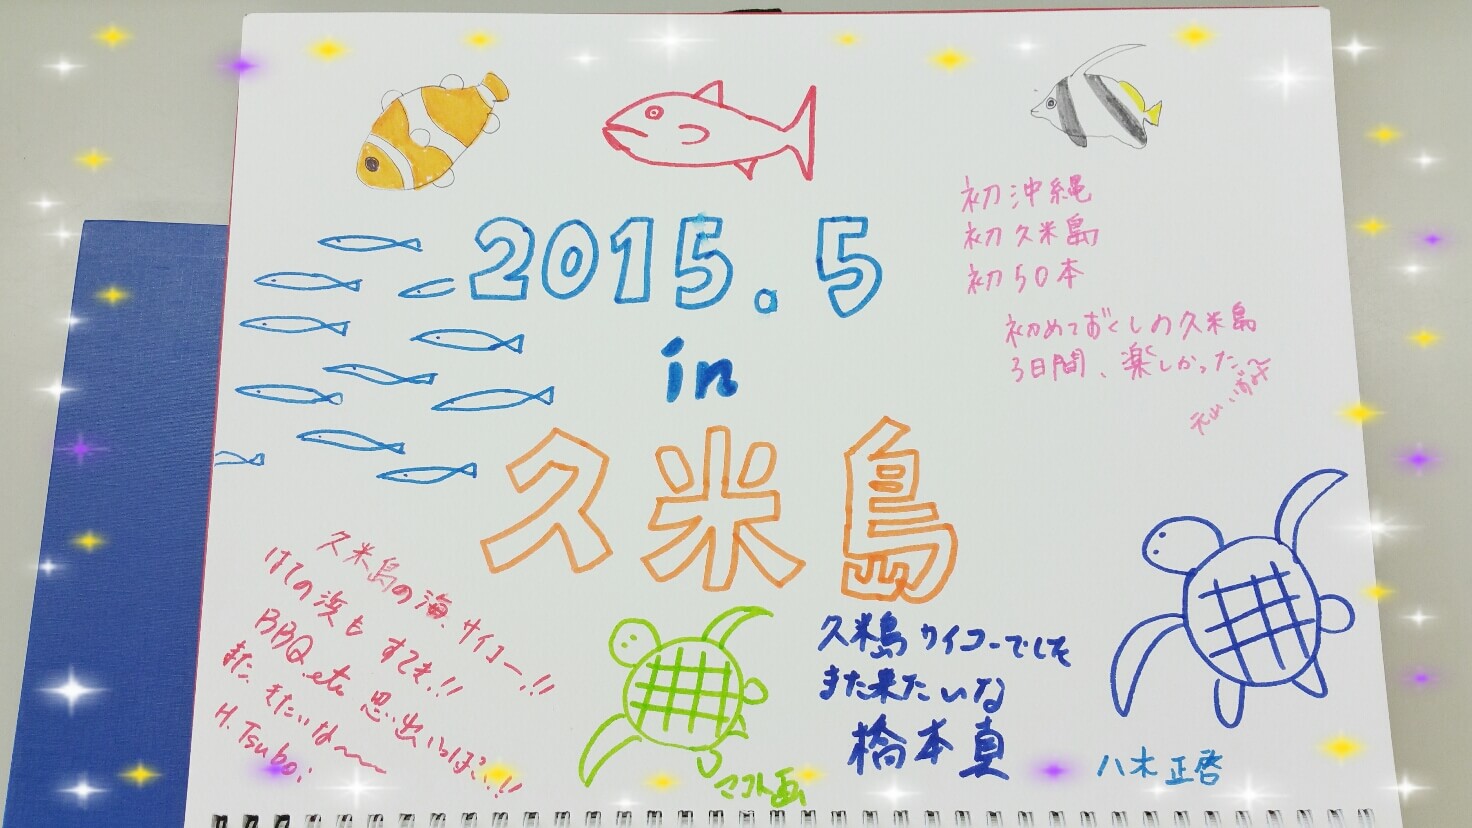 2015.5
in
久米島
初沖縄
初久米島
初50本
初めてずくしの久米島
3日間、楽しかった〜
久米島の海、サイコー!!
はての浜も すてき!!
BBQ etc 思い出いっぱい!!
また きたいな〜〜
H.Tsuboi
マコト画
久米島サイコーでした
また来たいな
橋本真
八木正啓